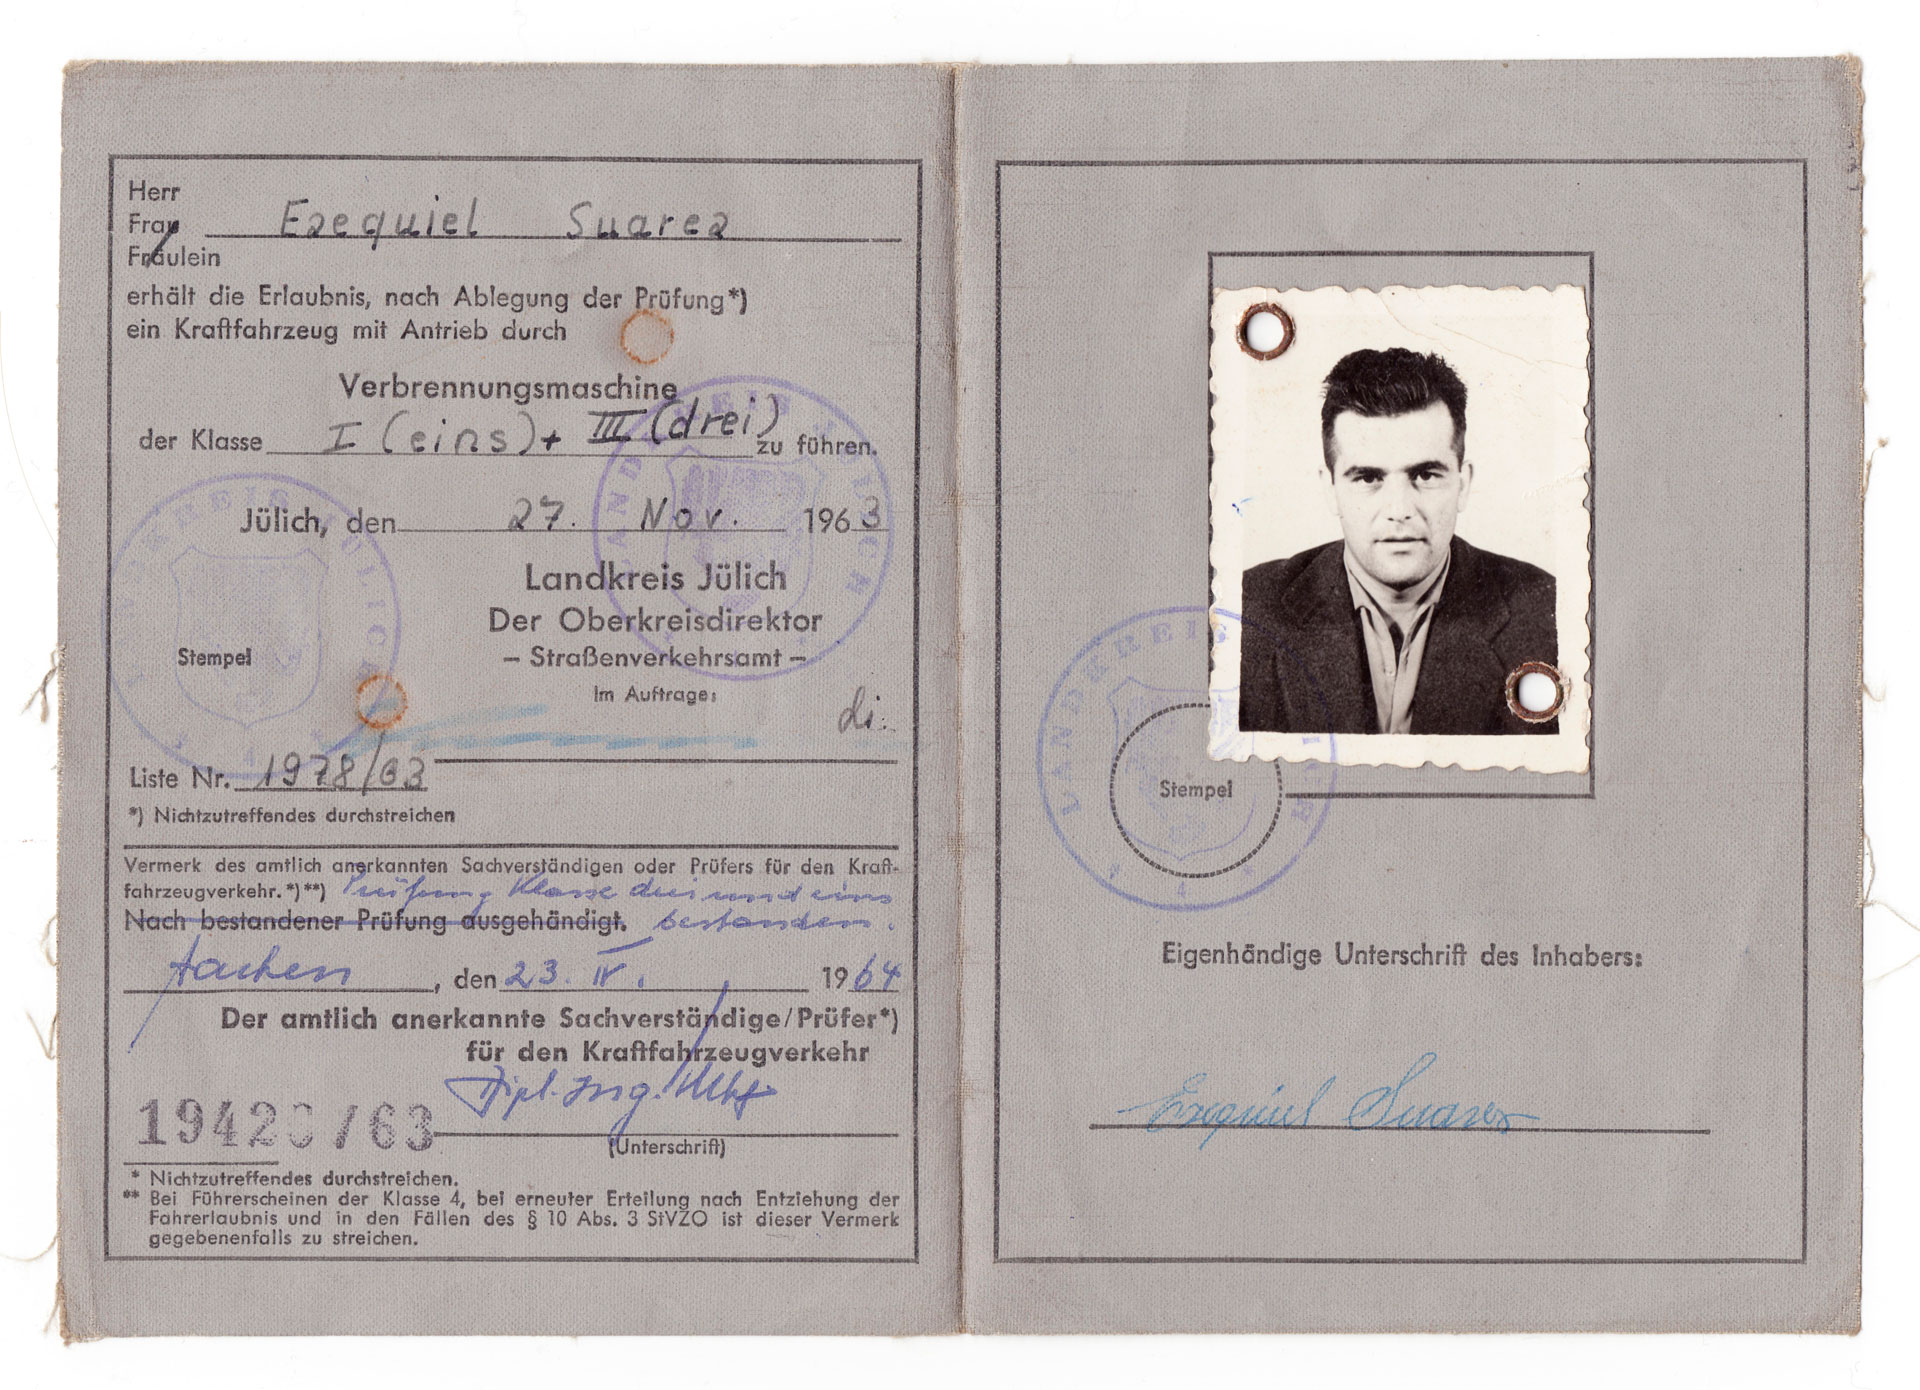 Herr
Frau Ezequiel Suarez
Fräulein
erhält die Erlaubnis, nach Ablegung der Prüfung*)
ein Kraftfahrzeug mit Antrieb durch
Verbrennungsmaschine
der Klasse I (eins) + III (drei) zu führen.
Jülich, den 27. Nov. 1963
Landkreis Jülich
Der Oberkreisdirektor
– Straßenverkehrsamt –
Im Auftrage:
Stempel
Li.
Liste Nr. 1978/63
*) Nichtzutreffendes durchstreichen
Vermerk des amtlich anerkannten Sachverständigen oder Prüfers für den Kraft-
fahrzeugverkehr.*)**) Prüfung Klasse drei und eins
Nach bestandener Prüfung ausgehändigt. bestanden.
Aachen, den 23. IV. 1964
Der amtlich anerkannte Sachverständige/Prüfer*)
für den Kraftfahrzeugverkehr
Dipl. Ing.
19428 /63
(Unterschrift)
* Nichtzutreffendes durchstreichen.
** Bei Führerscheinen der Klasse 4, bei erneuter Erteilung nach Entziehung der
Fahrerlaubnis und in den Fällen des § 10 Abs. 3 StVZO ist dieser Vermerk
gegebenenfalls zu streichen.
LANDKREIS JÜLICH
* 4 *
LANDKREIS JÜLICH
LANDKREIS JÜLICH
* 4 *
Stempel
Eigenhändige Unterschrift des Inhabers:
Ezequiel Suarez